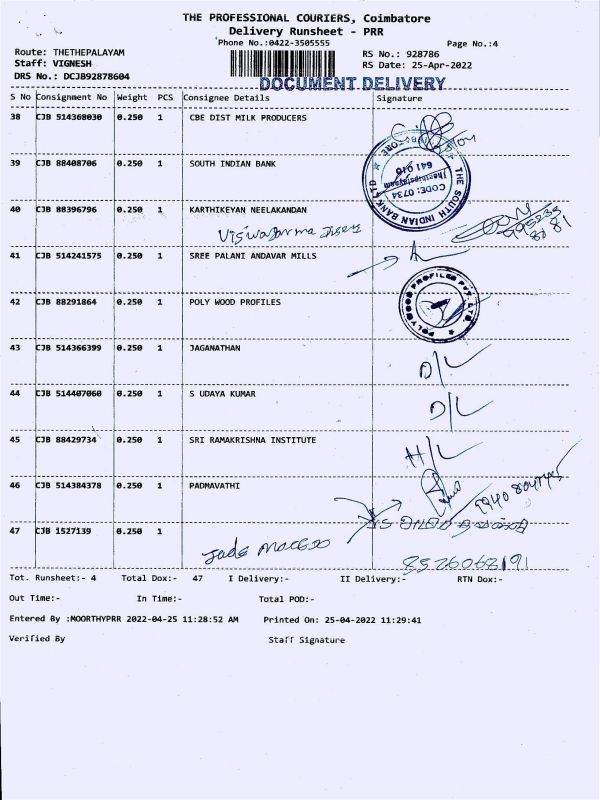 THE PROFESSIONAL COURIERS, Coimbatore
Delivery Runsheet - PRR
Phone No.:0422-3505555
Page No.:4
Route: THETHEPALAYAM
RS No.: 928786
Staff: VIGNESH
RS Date: 25-Apr-2022
DRS No.: DCJB92878604
DOCUMENT DELIVERY
S No Consignment No Weight PCS Consignee Details Signature
38 CJB 514368030 0.250 1 CBE DIST MILK PRODUCERS
39 CJB 88408706 0.250 1 SOUTH INDIAN BANK
THE SOUTH INDIAN BANK LTD
CODE: 0734
641 010
40 CJB 88396796 0.250 1 KARTHIKEYAN NEELAKANDAN
41 CJB 514241575 0.250 1 SREE PALANI ANDAVAR MILLS
42 CJB 88291864 0.250 1 POLY WOOD PROFILES
POLYWOOD PROFILES PVT. LTD.
43 CJB 514366399 0.250 1 JAGANATHAN
D/L
44 CJB 514407060 0.250 1 S UDAYA KUMAR
D/L
45 CJB 88429734 0.250 1 SRI RAMAKRISHNA INSTITUTE
H/L
46 CJB 514384378 0.250 1 PADMAVATHI
47 CJB 1527139 0.250 1
8526068191
Tot. Runsheet:- 4 Total Dox:- 47 I Delivery:- II Delivery:- RTN Dox:-
Out Time:- In Time:- Total POD:-
Entered By :MOORTHYPRR 2022-04-25 11:28:52 AM Printed On: 25-04-2022 11:29:41
Verified By Staff Signature